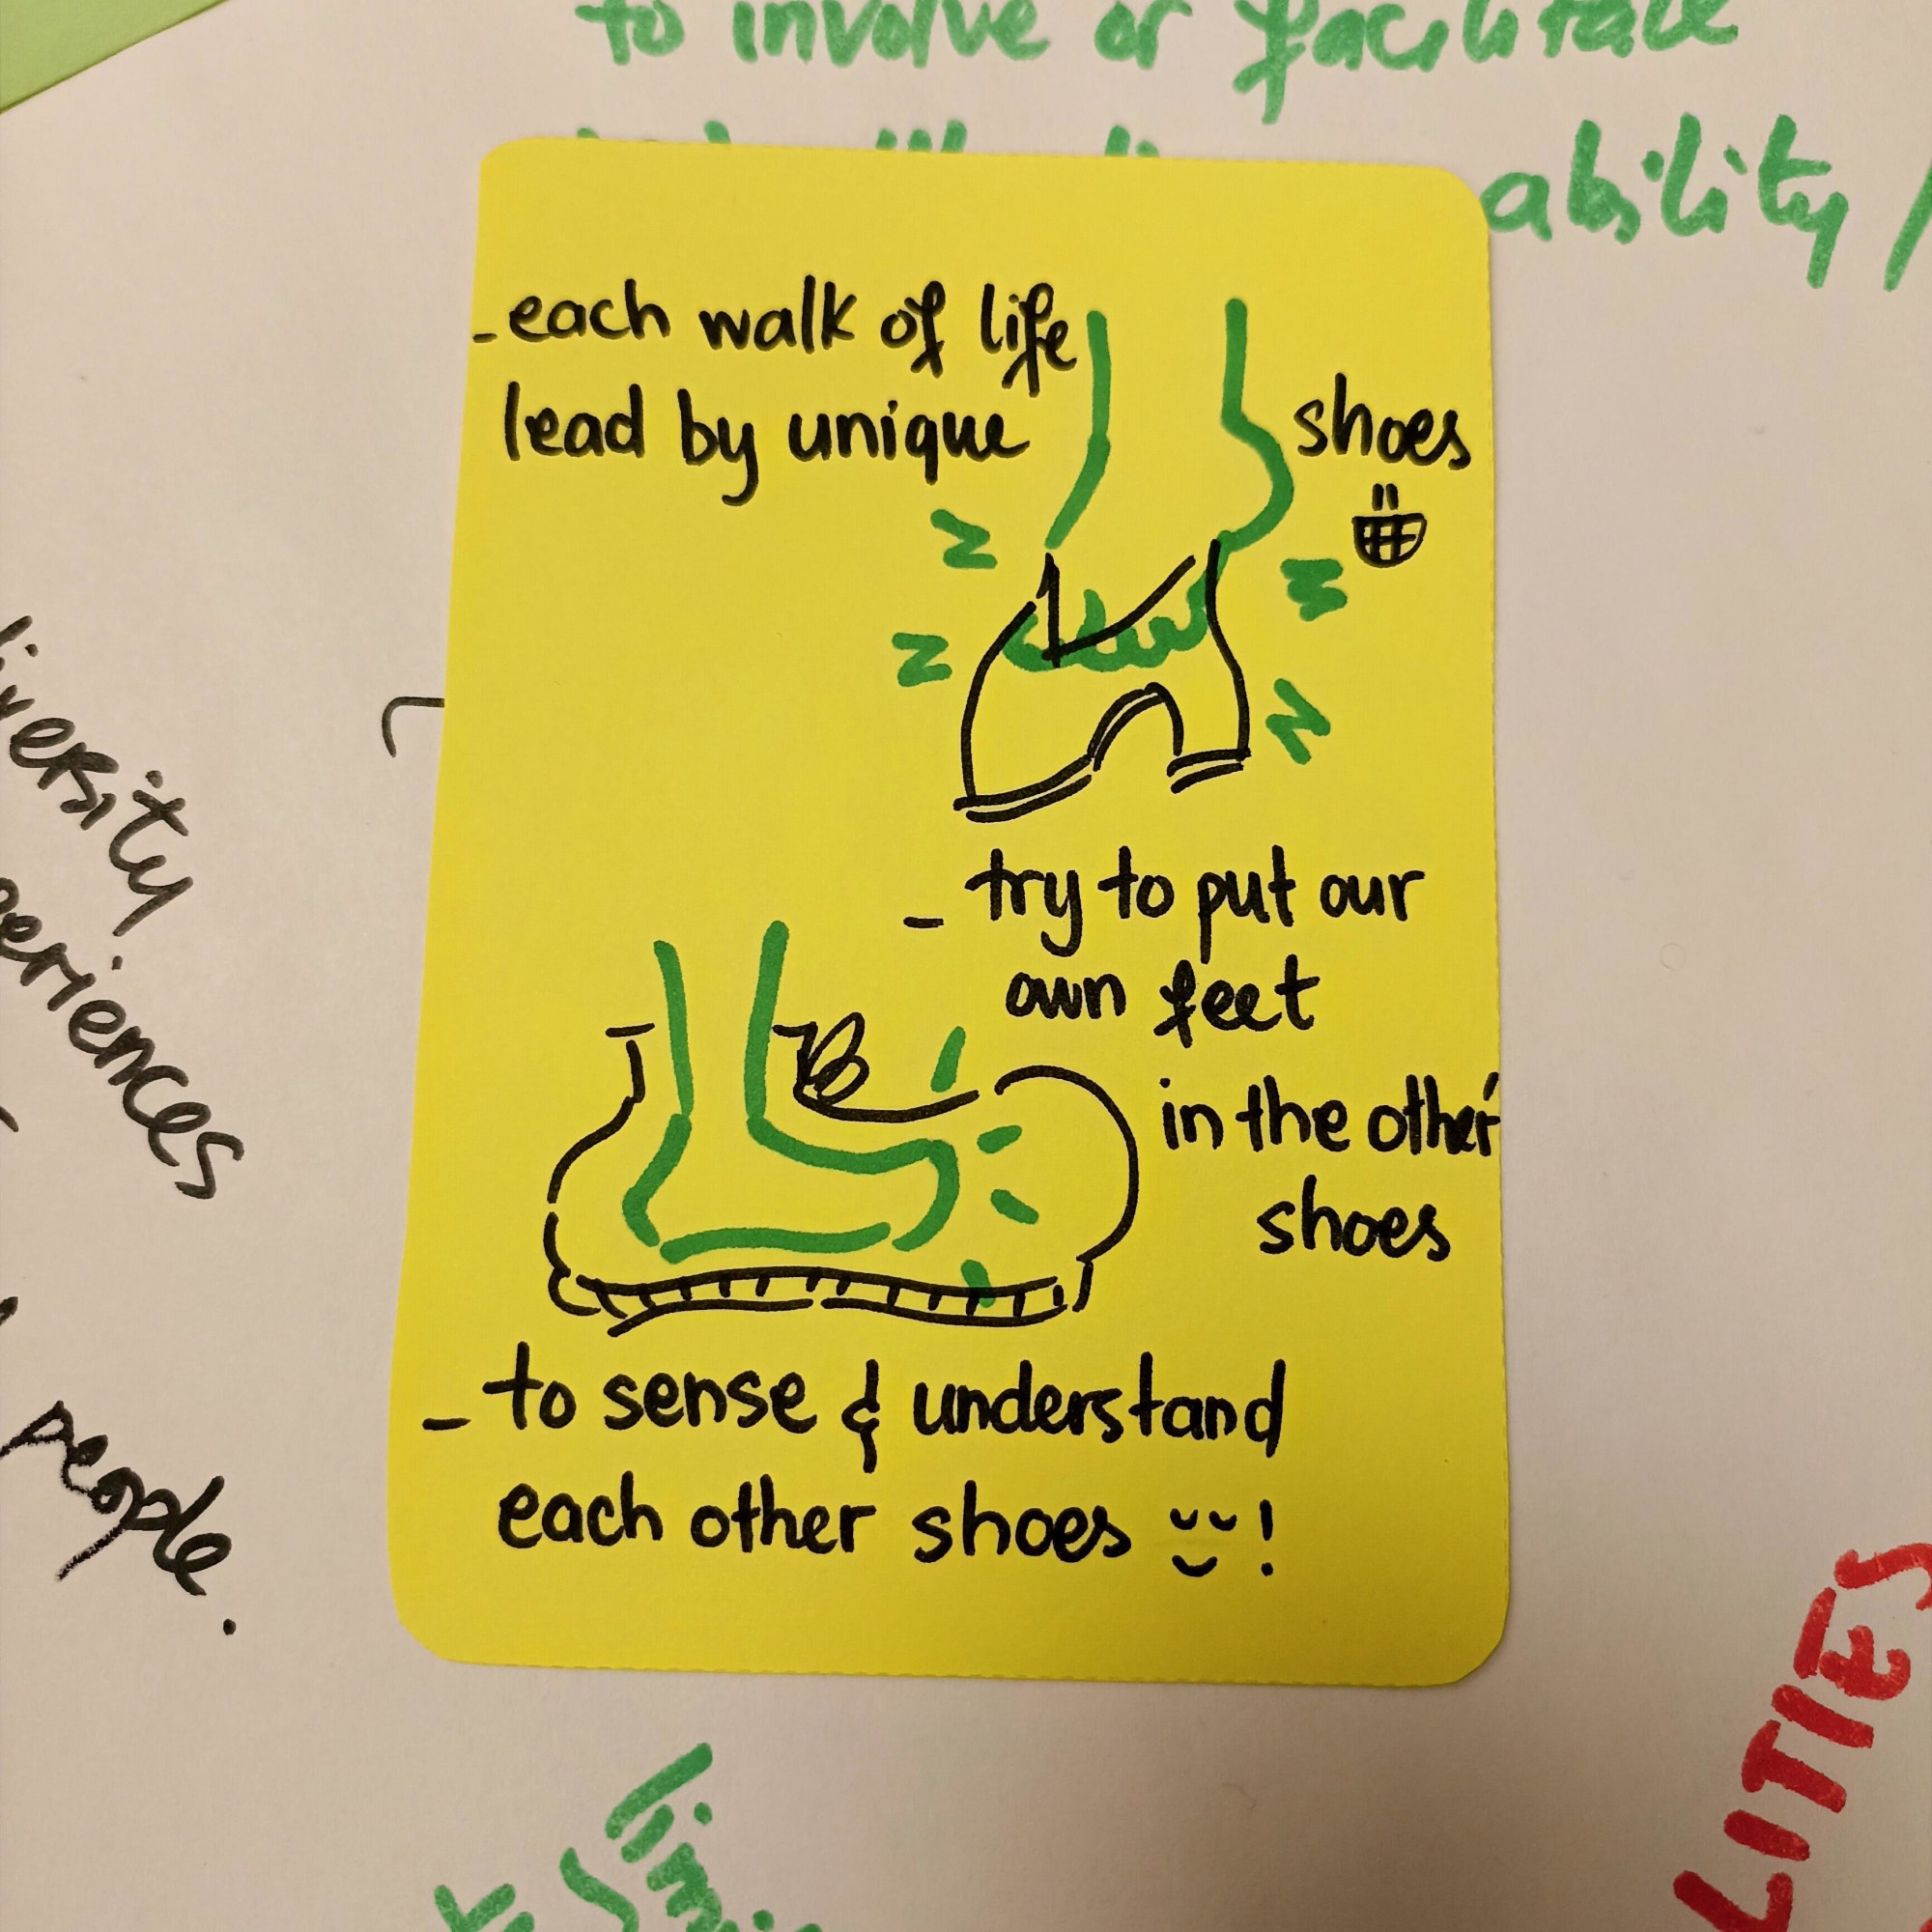 to involve or facilitate
ability /
- each walk of life
lead by unique shoes
- try to put our
own feet
in the other'
shoes
- to sense & understand
each other shoes !
people.